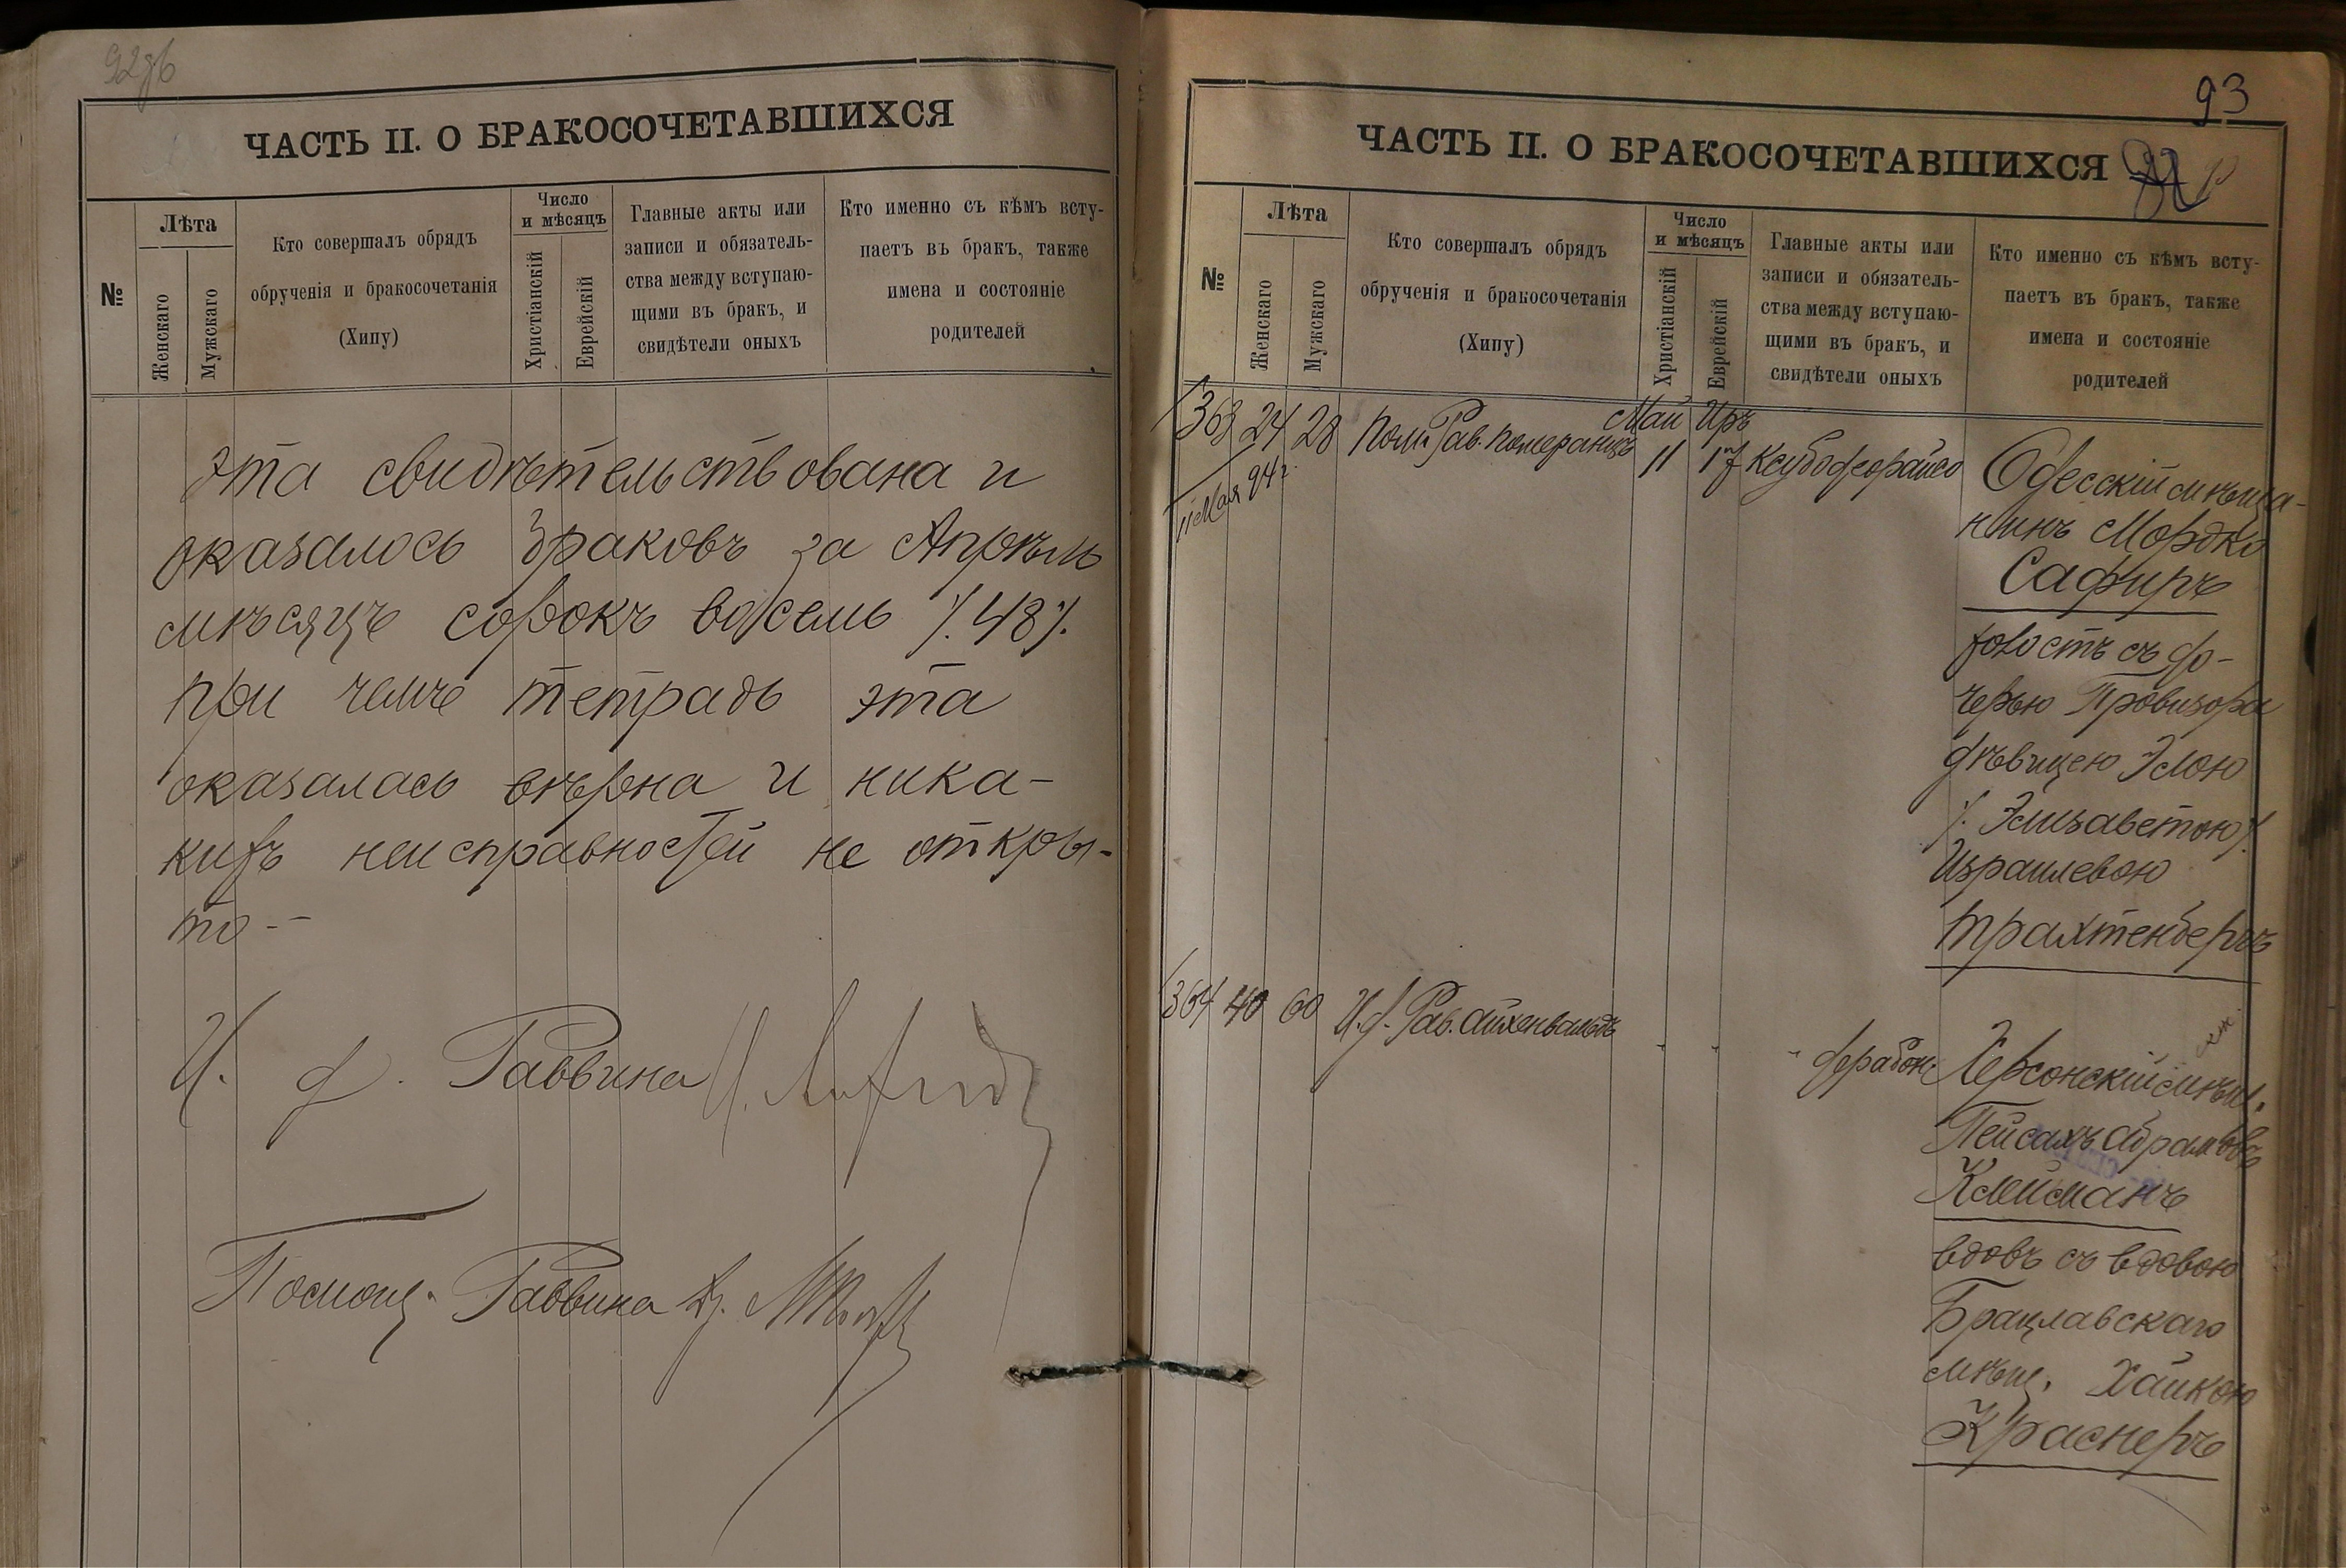 92об
ЧАСТЬ II. О БРАКОСОЧЕТАВШИХСЯ
№
Лѣта
Женскаго
Мужскаго
Кто совершалъ обрядъ
обрученія и бракосочетанія
(Хипу)
Число
и мѣсяцъ
Христіанскій
Еврейскій
Главные акты или
записи и обязатель-
ства между вступаю-
щими въ бракъ, и
свидѣтели оныхъ
Кто именно съ кѣмъ всту-
паетъ въ бракъ, также
имена и состояніе
родителей
Эта свидѣтельствована и
оказалось браковъ за Апрѣль
мѣсяцъ сорокъ восемь ·/.48/.
при чемъ тетрадь эта
оказалась вѣрна и ника-
кихъ неисправностей не откры-
то -
И. д. Раввина
Помощ. Раввина
93
ЧАСТЬ II. О БРАКОСОЧЕТАВШИХСЯ
№
Лѣта
Женскаго
Мужскаго
Кто совершалъ обрядъ
обрученія и бракосочетанія
(Хипу)
Число
и мѣсяцъ
Христіанскій
Еврейскій
Главные акты или
записи и обязатель-
ства между вступаю-
щими въ бракъ, и
свидѣтели оныхъ
Кто именно съ кѣмъ всту-
паетъ въ бракъ, также
имена и состояніе
родителей
Май Иръ
363 24 28 Пом. Рав. Померанцъ 11 17
11 Мая 94 г.
Одесскій мѣща-
нинъ Мордко
Сафиръ
холостъ съ до-
черью Провизора
дѣвицею Элою
/. Элизаветою/.
Израилевою
Трахтенбергъ
364 40 60 И. д. Рав. Айхенвальдъ " " "
Херсонскій мѣщ.
Пейсахъ Абрамовъ
Клейманъ
вдовъ съ вдовою
Брацлавскаго
мѣщ. Хайкою
Краснеръ